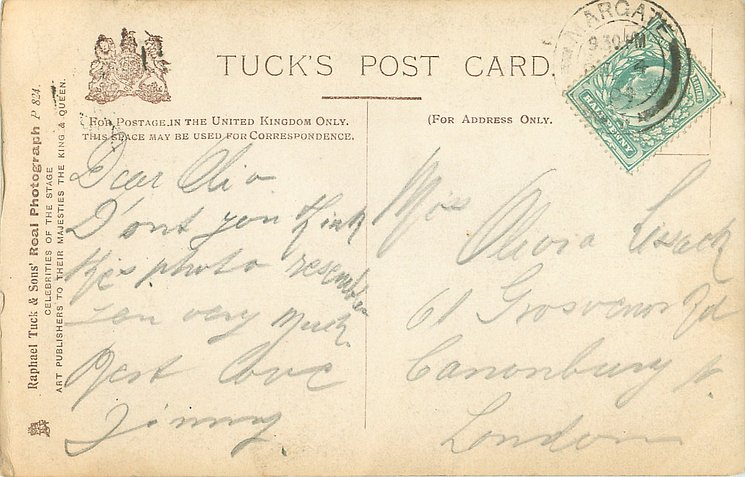 TUCK'S POST CARD.
FOR POSTAGE IN THE UNITED KINGDOM ONLY.
THIS SPACE MAY BE USED FOR CORRESPONDENCE.
(FOR ADDRESS ONLY.
MARGATE
9.30 PM
HALFPENNY
Raphael Tuck & Sons' Real Photograph P 824.
CELEBRITIES OF THE STAGE
ART PUBLISHERS TO THEIR MAJESTIES THE KING & QUEEN.
Dear Oliv
D'ont you think
this photo resembles
you very much
Best love
Jimmy
Miss
Olivia
61 Grosvenor Rd
Canonbury N.
London